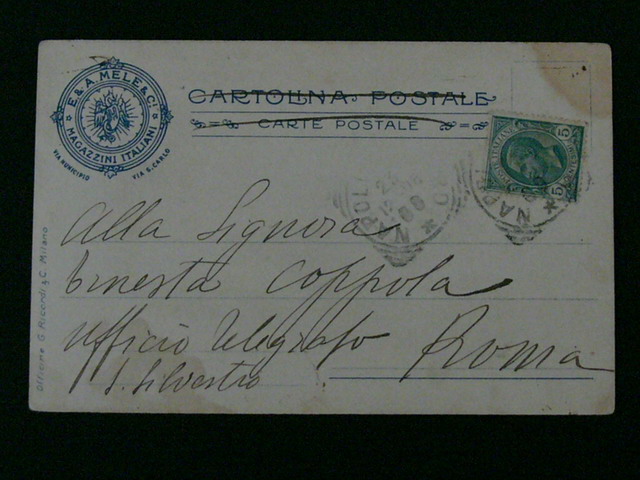 E. & A. MELE & Ci.
MAGAZZINI ITALIANI
VIA MUNICIPIO
VIA S. CARLO
CARTOLINA POSTALE
CARTE POSTALE
5 5
NAPOLI
NAP
Alla Signora
Ernesta Coppola
Ufficio Telegrafo Roma
S. Silvestro
Officine G. Ricordi & C. Milano